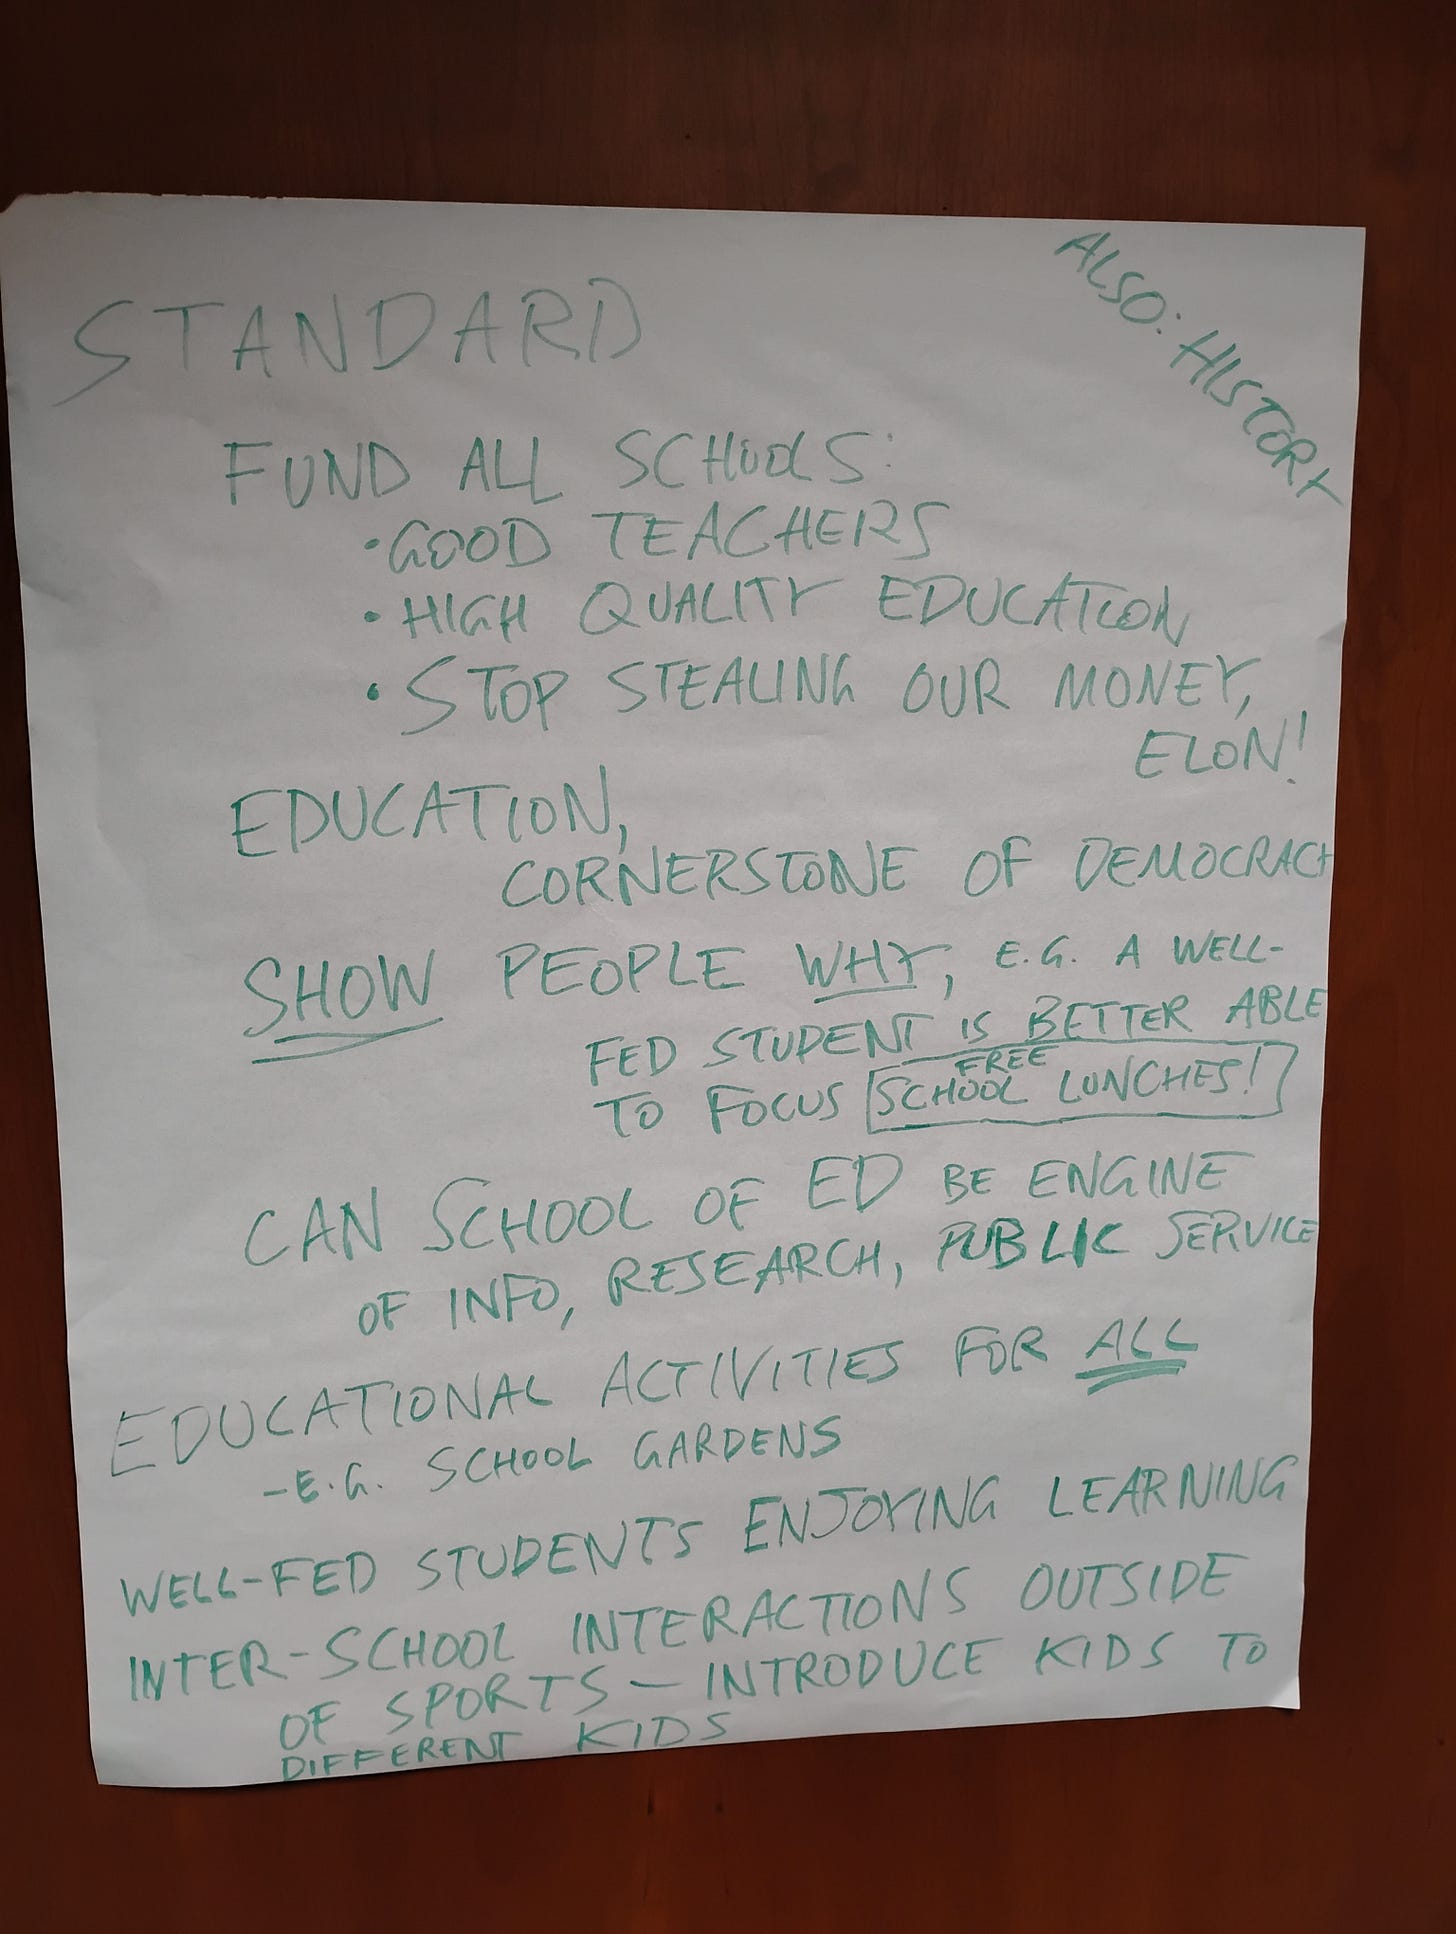 ALSO: HISTORY
STANDARD
FUND ALL SCHOOLS:
• GOOD TEACHERS
• HIGH QUALITY EDUCATION
• STOP STEALING OUR MONEY,
ELON!
EDUCATION,
CORNERSTONE OF DEMOCRACY
SHOW PEOPLE WHY, E.G. A WELL-
FED STUDENT IS BETTER ABLE
FREE
TO FOCUS SCHOOL LUNCHES!
CAN SCHOOL OF ED BE ENGINE
OF INFO, RESEARCH, PUBLIC SERVICE
EDUCATIONAL ACTIVITIES FOR ALL
- E.G. SCHOOL GARDENS
WELL-FED STUDENTS ENJOYING LEARNING
INTER-SCHOOL INTERACTIONS OUTSIDE
OF SPORTS - INTRODUCE KIDS TO
DIFFERENT KIDS